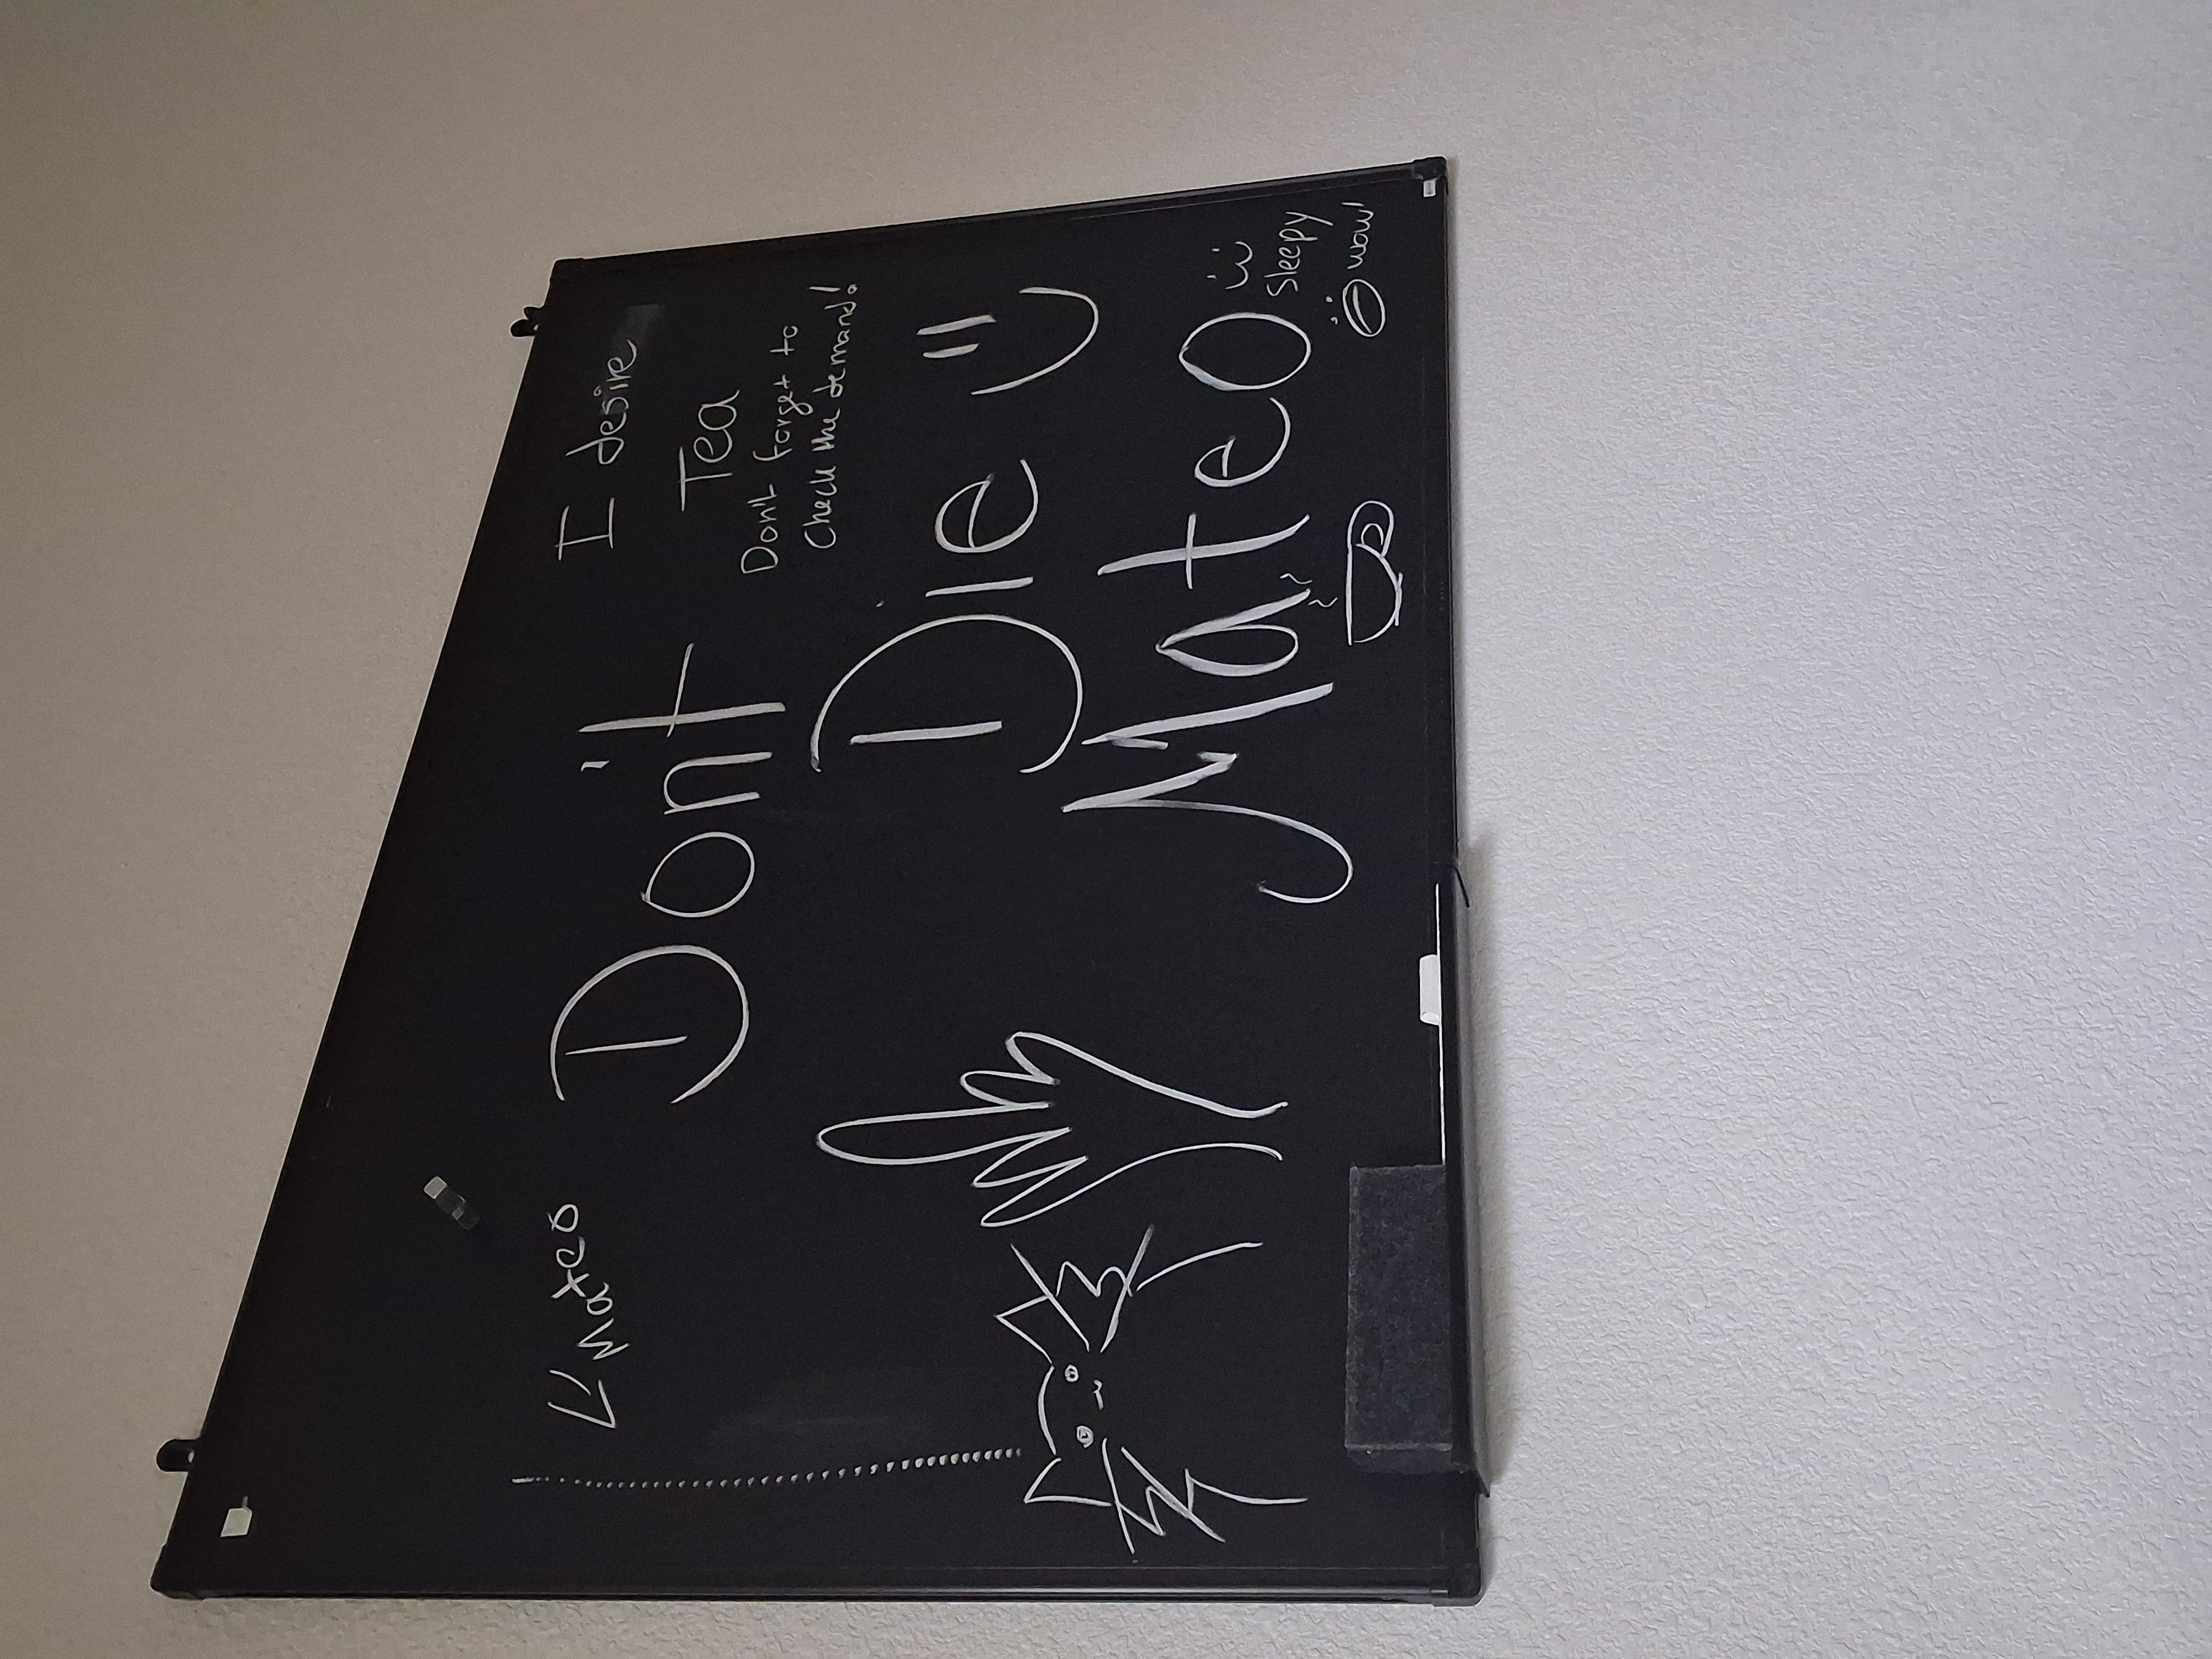 Mateo
Don't
Die
Mateo
I desire
Tea
Don't forget to
Check the demand!
Sleepy
wow!